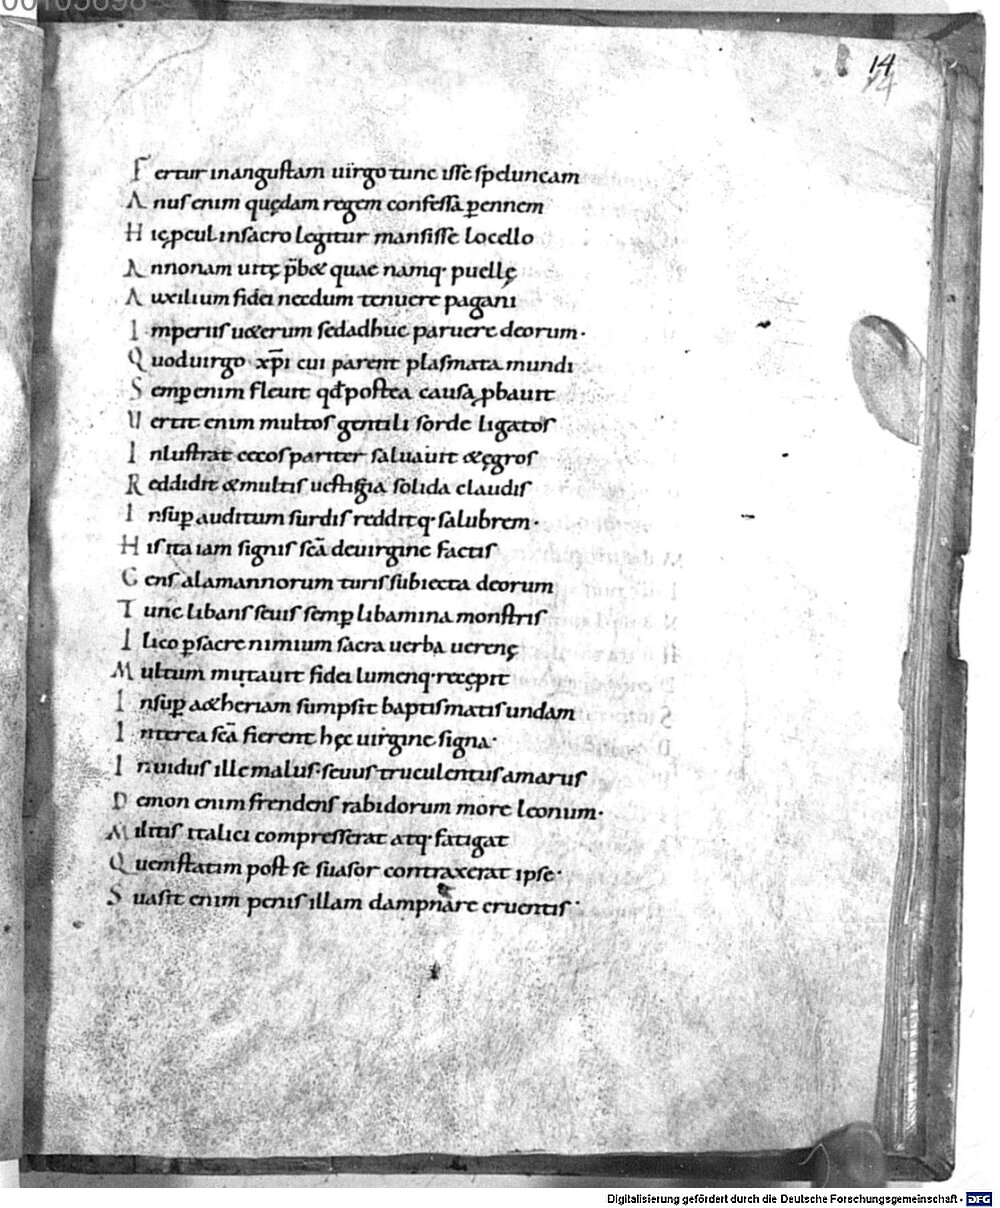 00103698
14
14
Fertur in angustam uirgo tunc isse speluncam
Anus enim quędam regem confessa ꝑennem
Hic ꝓcul insacro legitur mansisse locello
Annonam uitę p̄b& quae namq· puellę
Auxilium fidei necdum tenuere pagani
Imperiis u&erum sedadhuc paruere deorum·
Quoduirgo xp̄i cui parent plasmata mundi
Semꝑ enim fleuit qđ postea causa ꝓbauit
Uertit enim multos gentili sorde ligatos
Inlustrat cecos pariter saluauit &ęgros
Reddidit &multis uestigia solida claudis
Insuꝑ auditum surdis redditq· salubrem·
His ita iam signis scā deuirgine factis
Gens alamannorum turis subiecta deorum
Tunc libans seuis semꝑ libamina monstris
Ilico ꝑsacre nimium sacra uerba uerenę
Multum mutauit fidei lumenq· recępit
Insuꝑ a&heriam sumpsit baptismatis undam
Interea scā fierent hęc uirgine signa·
Inuidus ille malus· seuus truculentus amarus
Demon enim frendens rabidorum more leonum·
Militis italici compresserat atq· fatigat
Quem statim post se suasor contraxerat ipse·
Suasit enim penis illam dampnare cruentis·
Digitalisierung gefördert durch die Deutsche Forschungsgemeinschaft - DFG